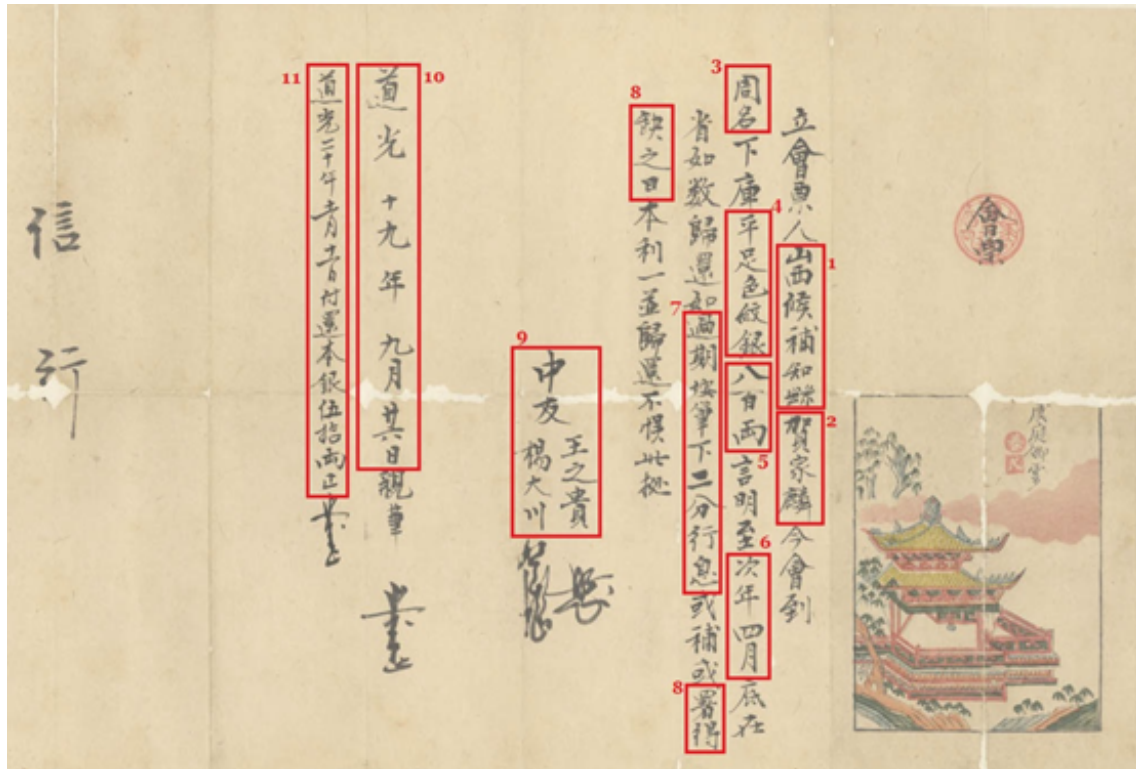 會票
慶庭卿雲
立會票人山西候補知縣賀家麟今會到
周名下庫平足色紋銀八百両言明至次年四月底在
省如数歸還如過期按筆下二分行息或補或署得
缺之日本利一並歸還不悮此拠
中友
王之貴
楊大川
道光十九年九月廿六日親筆
道光二十年十一月十一日付還本銀伍拾両正
信行
1
2
3
4
5
6
7
8
8
9
10
11